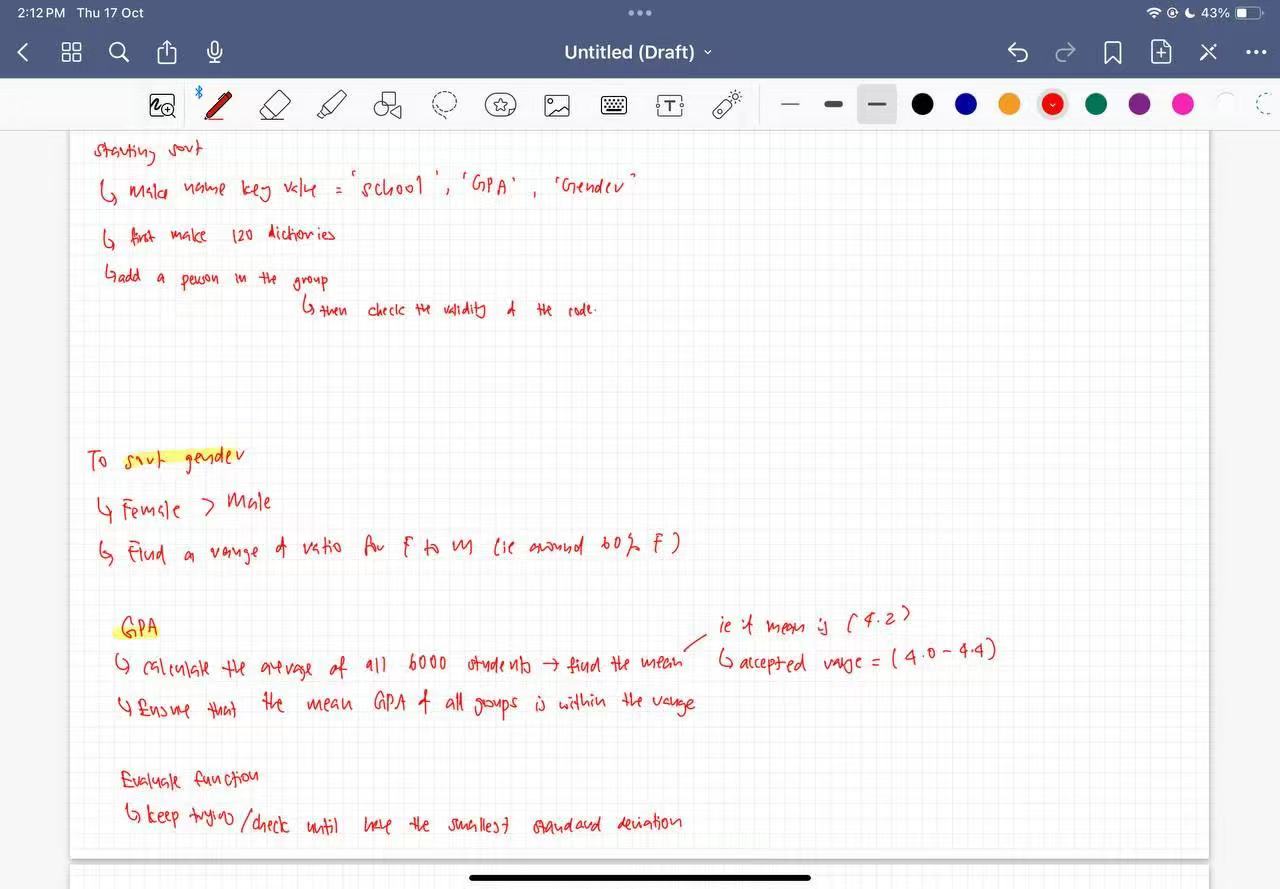 2:12 PM Thu 17 Oct
43%
Untitled (Draft)
starting sort
↳ make name key value = 'school', 'GPA', 'Gender'
↳ first make 120 dictionries
↳ add a person in the group
↳ then check the validity of the code.
To sort gender
↳ Female > Male
↳ Find a range of ratio for F to M (ie around 60% F)
GPA
ie if mean is (4.2)
↳ calculate the average of all 6000 students → find the mean
↳ accepted range = (4.0 - 4.4)
↳ Ensure that the mean GPA of all groups is within the range
Evaluate function
↳ keep trying/check until have the smallest standard deviation